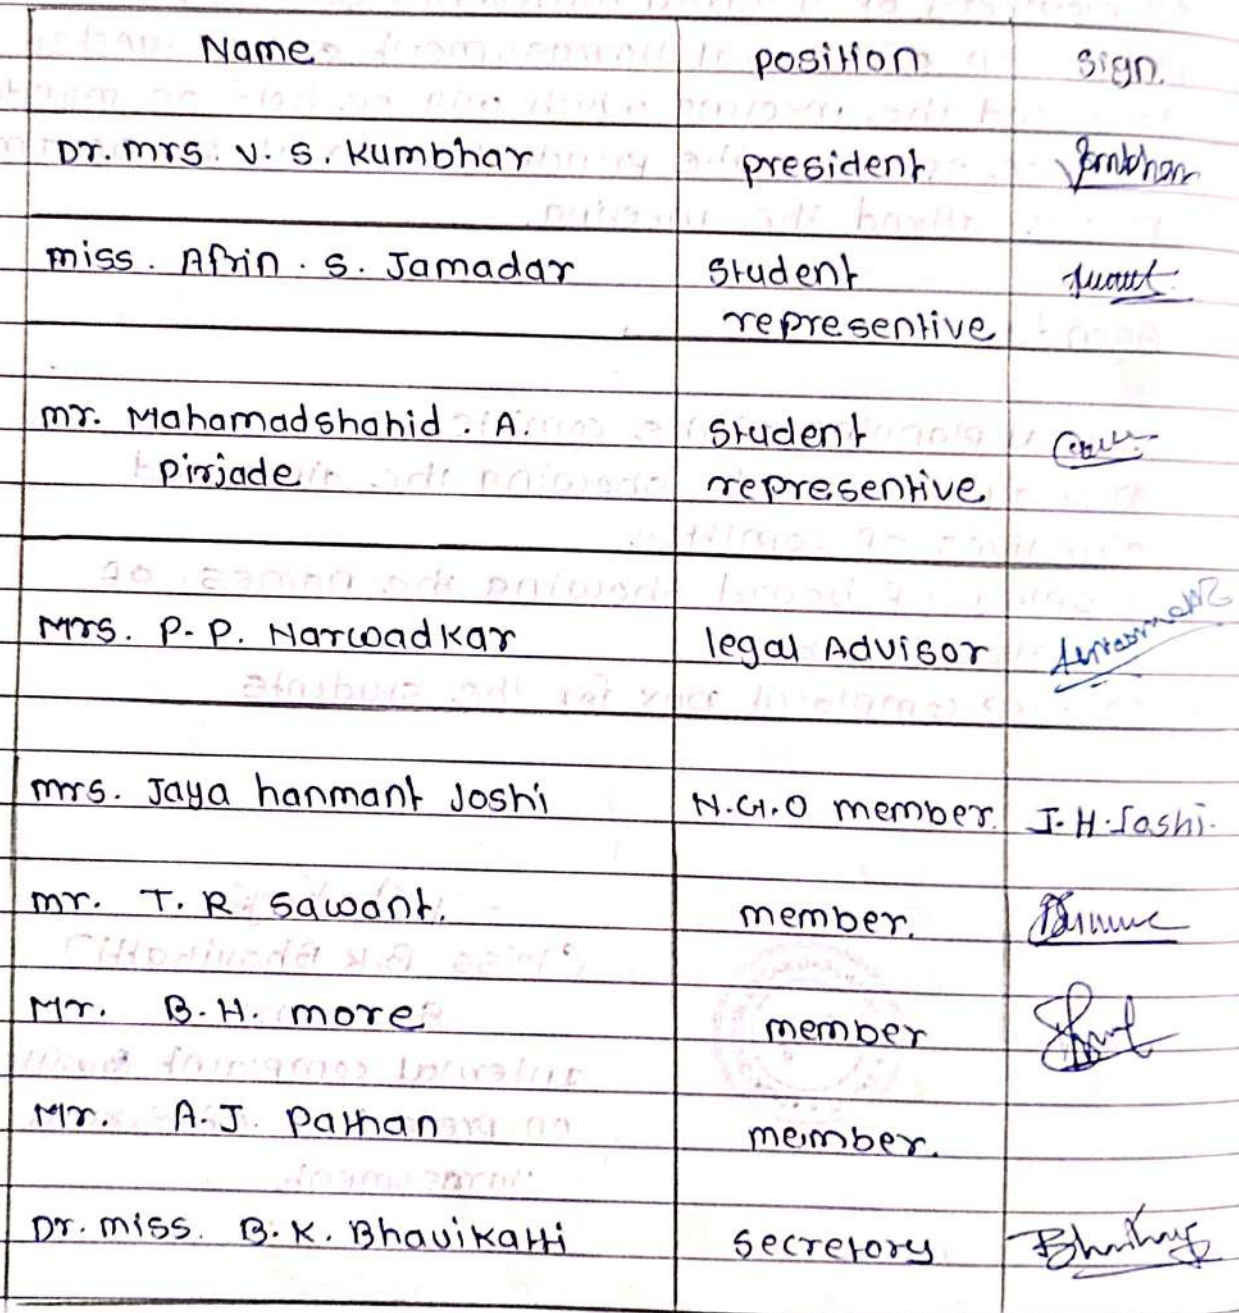 Name position sign.
Dr. mrs. v. s. Kumbhar president
miss. Afrin. s. Jamadar student
representive
mr. Mahamadshahid. A. student
Pirjade representive
Mrs. P. P. Narwadkar legal Advisor
mrs. Jaya hanmant Joshi N.G.O member. J. H. Joshi.
mr. T. R sawant. member.
Mr. B. H. more member
Mr. A. J. Pathan member.
Dr. miss. B. K. Bhavikatti secretory